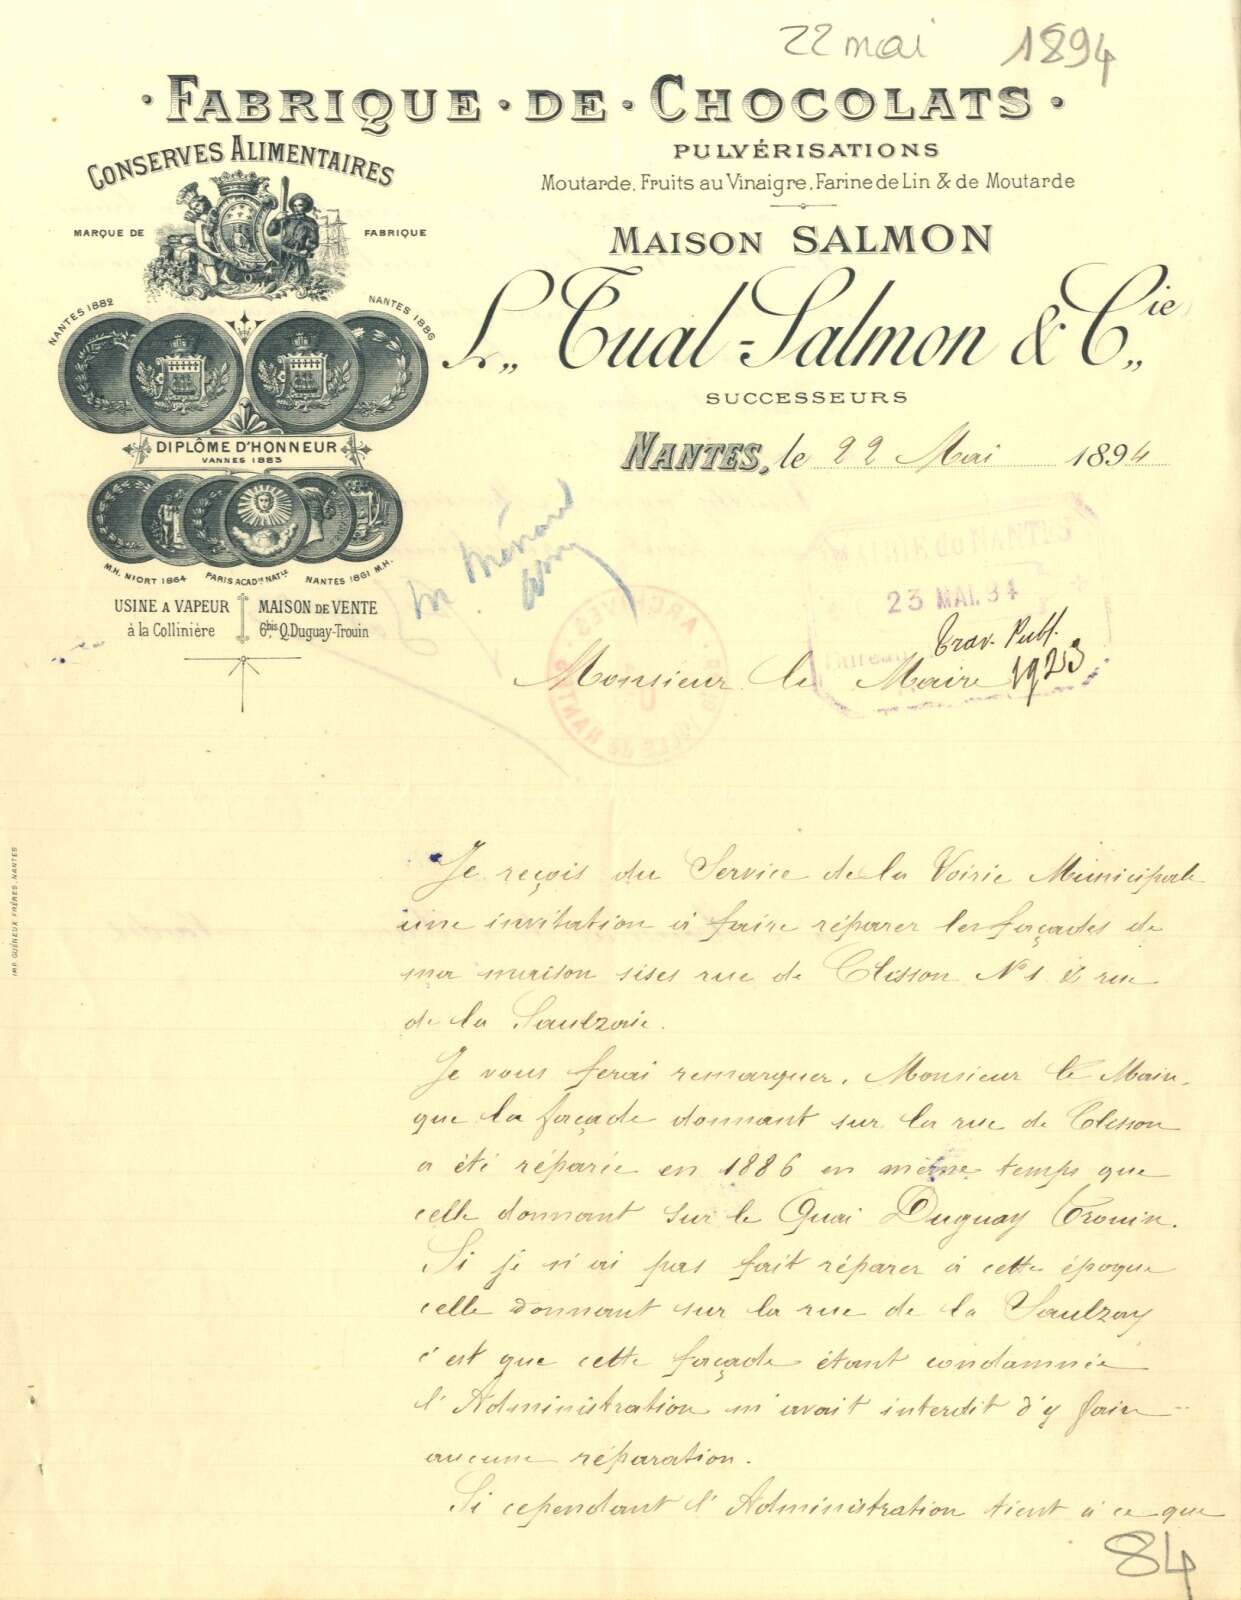 22 mai 1894
· FABRIQUE · DE · CHOCOLATS ·
CONSERVES ALIMENTAIRES
MARQUE DE FABRIQUE
PULVÉRISATIONS
Moutarde, Fruits au Vinaigre, Farine de Lin & de Moutarde
MAISON SALMON
L. Tual-Salmon & Cie
SUCCESSEURS
NANTES 1882
NANTES 1886
DIPLÔME D'HONNEUR
VANNES 1883
M.H. NIORT 1864
PARIS ACAD.ie NAT.le
NANTES 1861 M.H.
USINE A VAPEUR
à la Collinière
MAISON DE VENTE
6bis Q. Duguay-Trouin
NANTES, le 22 Mai 1894
MAIRIE de NANTES
23 MAI. 94
Trav. Publ.
1923
M Ménard
ARCHIVES
VILLE de NANTES
Monsieur le Maire
Je reçois du Service de la Voirie Municipale
une invitation à faire réparer les façades de
ma maison sises rue de Clisson N° 1 & rue
de la Saulzaie.
Je vous ferai remarquer, Monsieur le Maire,
que la façade donnant sur la rue de Clisson
a été réparée en 1886 en même temps que
celle donnant sur le Quai Duguay Trouin.
Si je n'ai pas fait réparer à cette époque
celle donnant sur la rue de la Saulzay
c'est que cette façade étant condamnée
l'Administration m'avait interdit d'y faire
aucune réparation.
Si cependant l'Administration tient à ce que
84
IMP. GUÉNEUX FRÈRES, NANTES